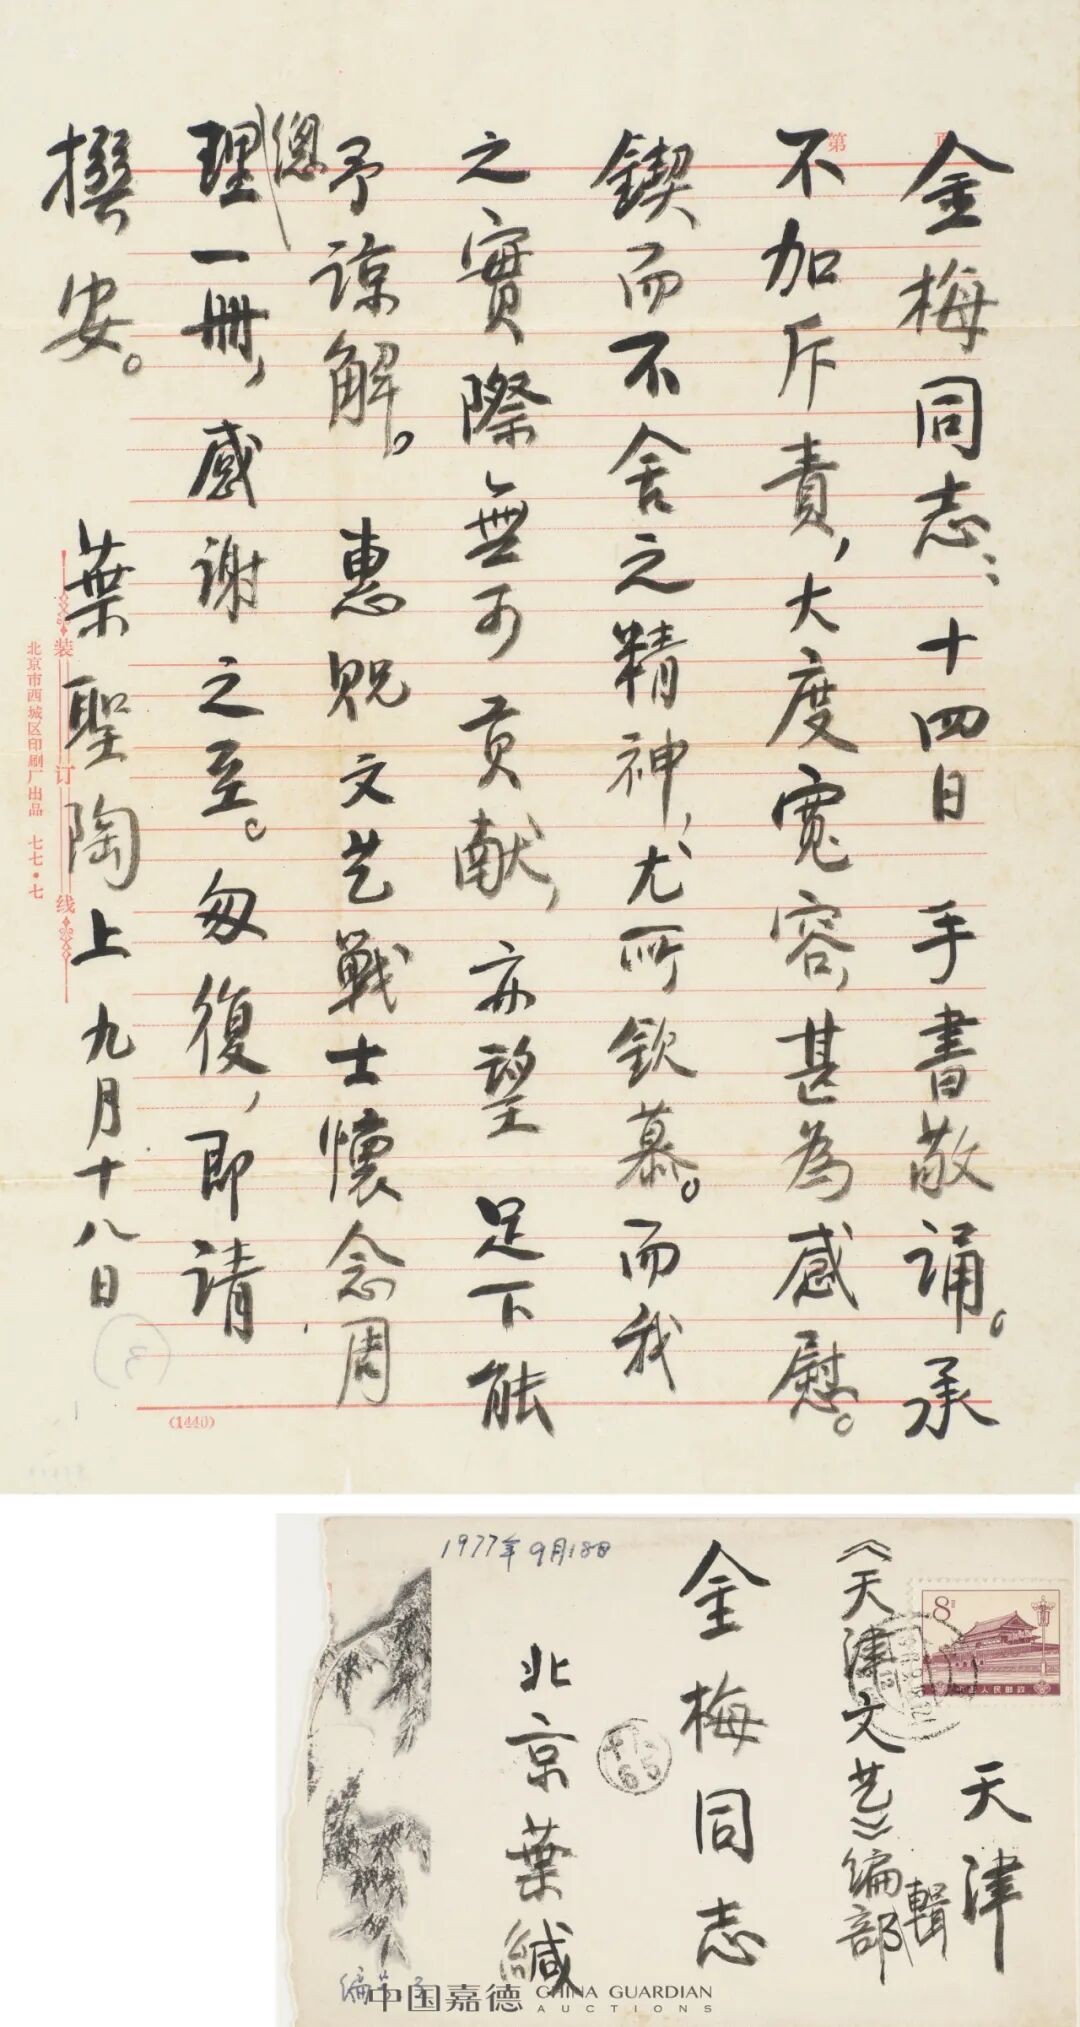 第 页
金梅同志：十四日 手書敬誦。承
不加斥責，大度寬容，甚為感慰。
鍥而不舍之精神，尤所欽慕。而我
之實際無可貢献，亦望 足下能
予諒解。 惠貺文艺戰士懷念周
總
理一冊，感謝之至。匆復，即請
撰安。
葉聖陶上 九月十八日
装订线
北京市西城区印刷厂出品 七七·七
(1440)
(3)
8分
中国人民邮政
天津
《天津文艺》编部
輯
金梅同志
北京葉緘
1977年9月18日
中国嘉德 CHINA GUARDIAN
AUCTIONS